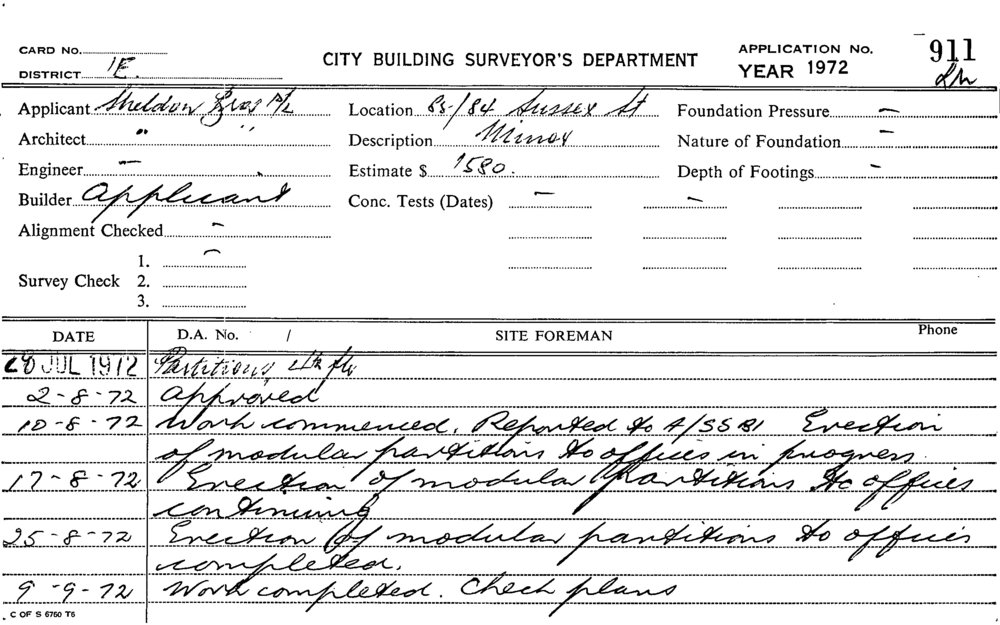 CARD No.
DISTRICT 1E.
CITY BUILDING SURVEYOR'S DEPARTMENT
APPLICATION No. 911
YEAR 1972
Applicant Sheldon Bros P/L
Location 85-/84 Sussex St
Foundation Pressure –
Architect " "
Description Minor
Nature of Foundation –
Engineer –
Estimate $ 1580.
Depth of Footings –
Builder Applicant
Conc. Tests (Dates) – –
Alignment Checked –
Survey Check 1. –
2.
3.
DATE D.A. No. / SITE FOREMAN Phone
28 JUL 1972 Partitions 4th flr
2-8-72 Approved
10-8-72 Work commenced. Reported to A/SSBI Erection
of modular partitions to offices in progress.
17-8-72 Erection of modular partitions to offices
continuing
25-8-72 Erection of modular partitions to offices
completed.
9-9-72 Work completed. Check plans
C OF S 6750 T6